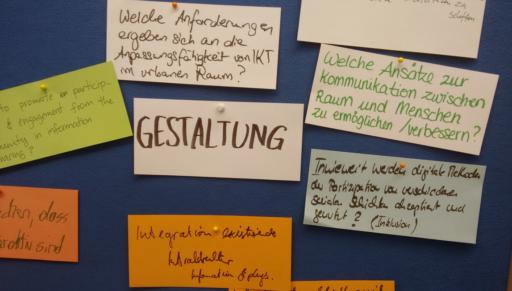 Welche Anforderungen
ergeben sich an die
Anpassungsfähigkeit von IKT
im urbanen Raum?
schaffen
Welche Ansätze zur
kommunikation zwischen
Raum und Menschen
zu ermöglichen / verbessern?
to promote particip-
& engagement from the
community in information
sharing?
GESTALTUNG
Inwieweit werden digitale Methoden
der Partizipation von verschiedenen
sozialen Schichten akzeptiert und
genutzt? (Inklusion)
dass
sind
Integration existierende
Infrastruktur
Information & phys.